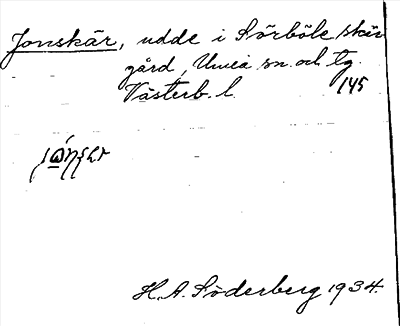 Jonskär, udde i Sörböle skär
gård, Umeå sn. och tg.
Västerb. l. 145
H. A. Söderberg 1934.